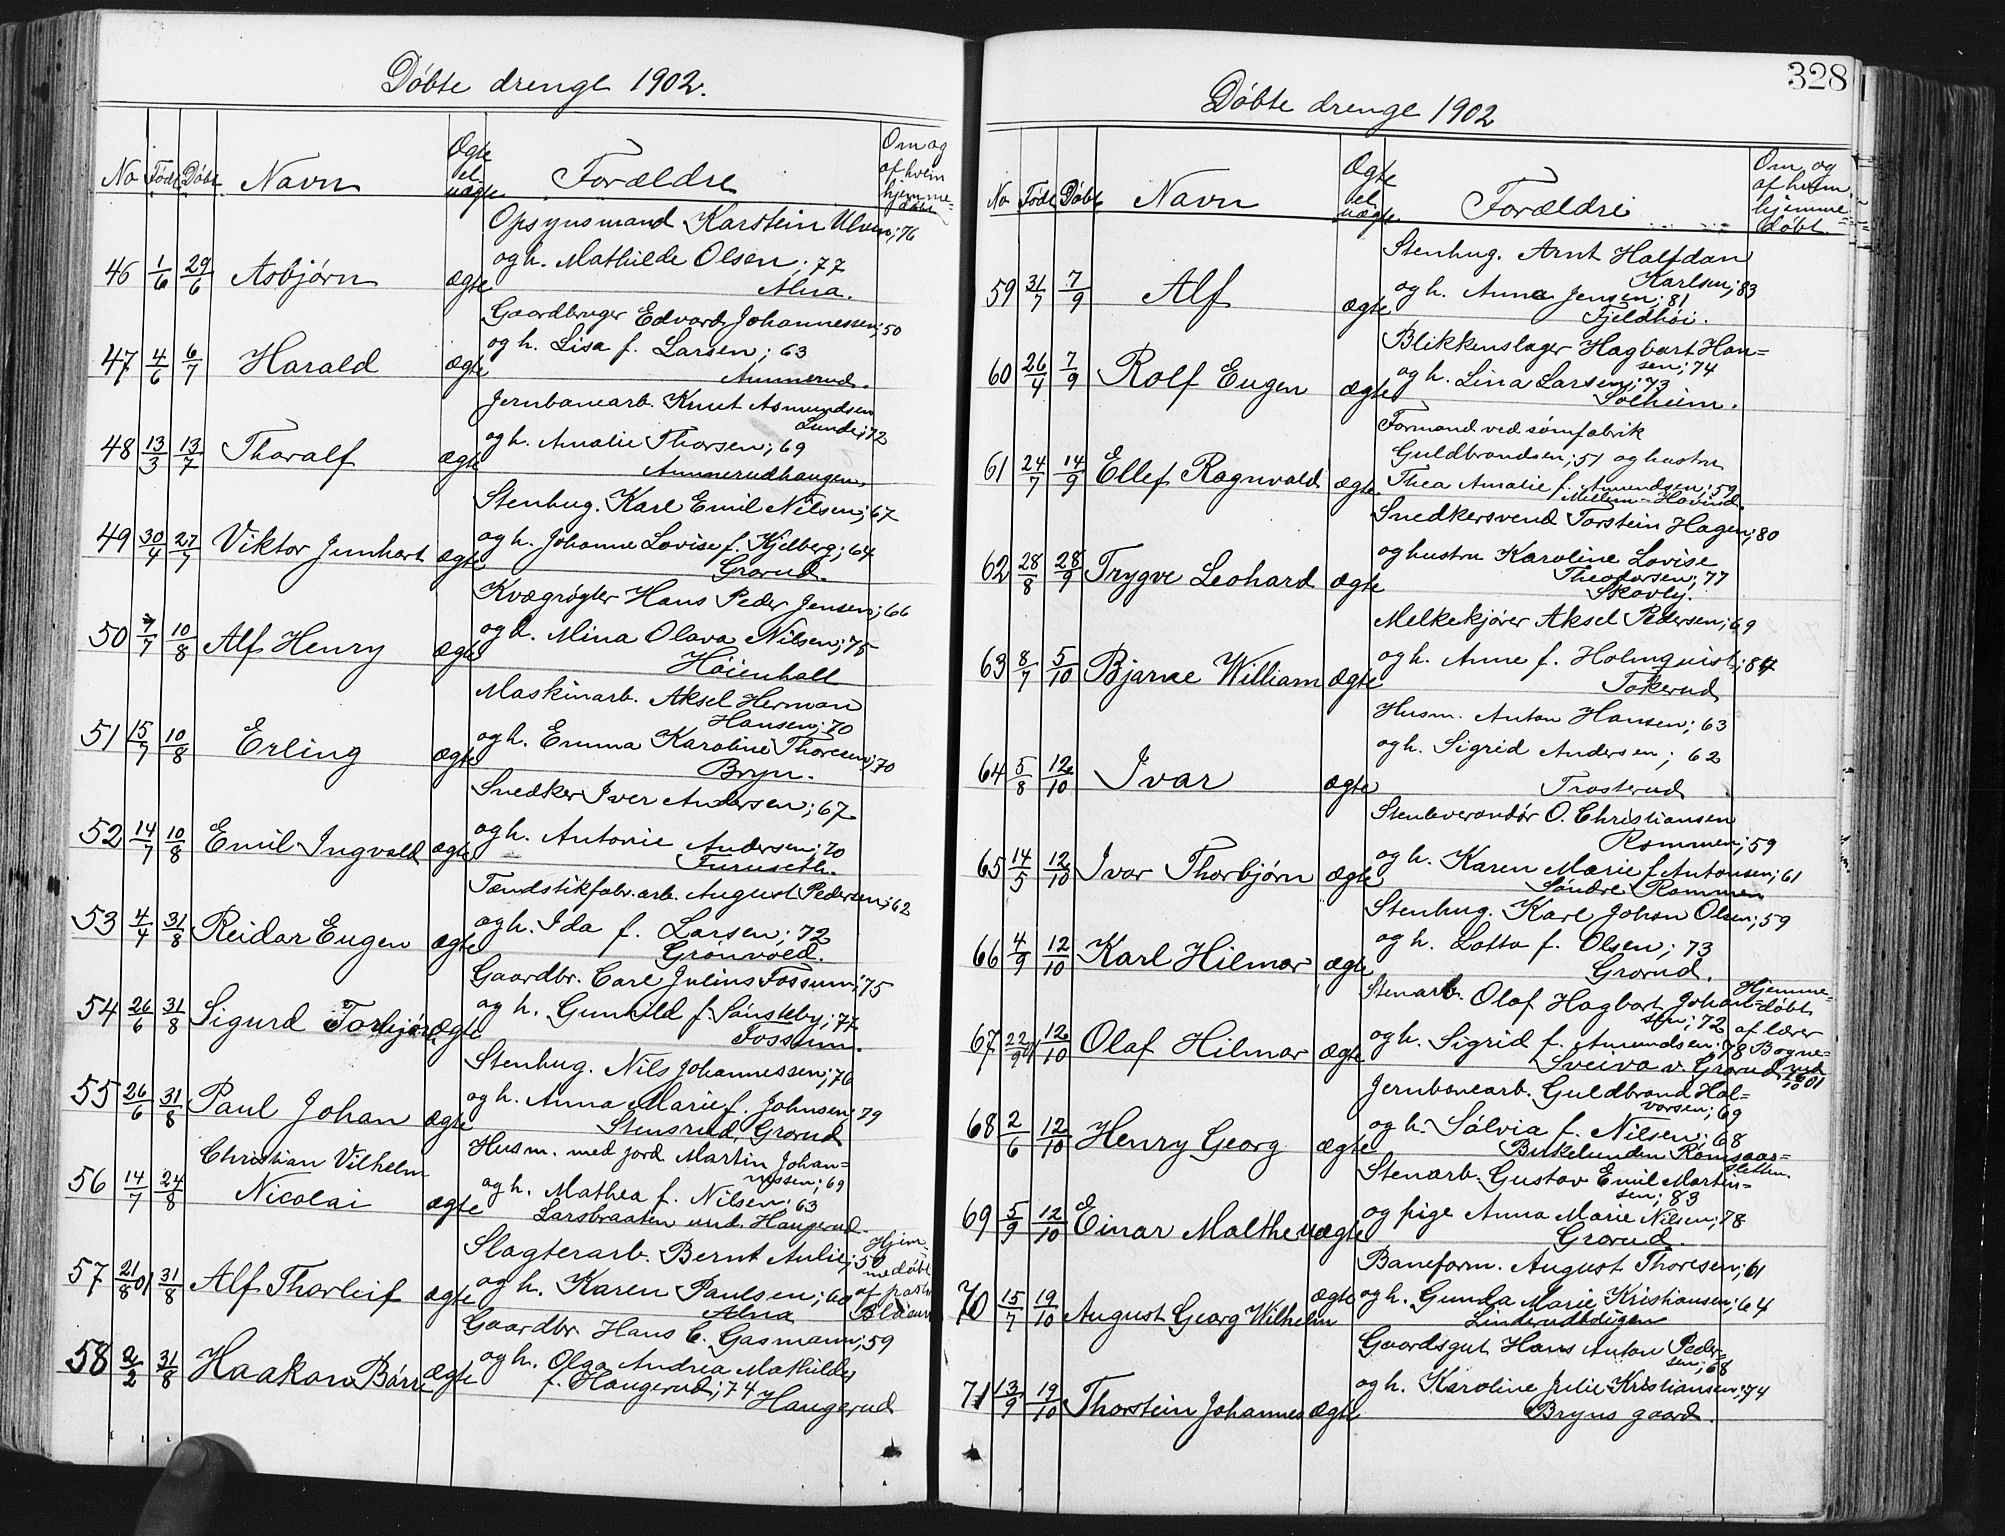 Döbte drenge 1902.
No Født Döbt Navn Ægte el. uægte Forældre Om og af hvem hjemmedöbt
Opsynsmand Karstein Ulven; 76
46 1/6 29/6 Asbjørn ægte og h. Mathilde Olsen; 77
Alna.
Gaardbruger Edvard Johannessen; 50
47 4/6 6/7 Harald ægte og h. Lisa f. Larsen; 63
Ammerud.
Jernbanearb. Knut Asmundsen
Lunde; 72
48 13/3 13/7 Thoralf ægte og h. Amalie Thorsen; 69
Ammerudhaugen
Stenhug. Karl Emil Nilsen; 67
49 30/4 27/7 Viktor Jenhart ægte og h. Johanne Lovise f. Kjelberg; 64
Grorud.
Kvægrøgter Hans Peder Jensen; 66
50 7/7 10/8 Alf Henry ægte og h. Mina Olava Nilsen; 75
Höienhall
Maskinarb. Aksel Herman
Hansen; 70
51 15/7 10/8 Erling ægte og h. Emma Karoline Thoresen; 70
Bryn.
Snedker Iver Andersen; 67
52 14/7 10/8 Emil Ingvald ægte og h. Antonie Andersen; 70
Furuseth.
Tændstikfabr.arb. August Pedersen; 62
53 4/4 31/8 Reidar Eugen ægte og h. Ida f. Larsen; 72
Grönvold.
Gaardbr. Carl Julius Fossum; 75
54 26/6 31/8 Sigurd Torbjörn ægte og h. Gunhild f. Sönsteby; 77
Fossum.
Stenhug. Nils Johannessen; 76
55 26/6 31/8 Paul Johan ægte og h. Anna Marie f. Johnsen; 79
Stensrud, Grorud
Christian Vilhelm Husm. med jord Martin Johan=
nessen; 69
56 14/7 24/8 Nicolai ægte og h. Mathea f. Nilsen; 63
Larsbraaten und. Haugerud
Slagterarb. Bernt Aulie; 50 Hjem=
57 21/8 01 31/8 Alf Thorleif ægte og h. Karen Paulsen; 60 medöbt af pastor
Alna
Gaardbr. Hans C. Gasmann; 59
58 2/2 31/8 Haakon Börre ægte og h. Olga Andrea Mathilde
f. Haugerud; 74 Haugerud
328
Döbte drenge 1902
No Født Döbt Navn Ægte el. uægte Forældre Om og af hvem hjemme=döbt.
Stenhug. Arnt Halfdan
Karlsen; 83
59 31/7 7/9 Alf ægte og h. Anna Jensen; 81
Fjeldhöi.
Blikkenslager Hagbart Han=
sen; 74
60 26/4 7/9 Rolf Eugen ægte og h. Lina Larsen; 73
Solheim.
Formand ved sömfabrik
Guldbrandsen; 51 og hustru
61 24/7 14/9 Ellef Ragnvald ægte Thea Amalie f. Amundsen; 59
Mellem-Hovind.
Snedkersvend Torstein Hagen; 80
62 28/8 28/9 Trygve Leohard ægte og hustru Karoline Lovise
Theodorsen; 77
Skovly.
Melkekjører Aksel Pedersen; 69
63 8/7 5/10 Bjarne William ægte og h. Anne f. Holmquist; 84
Tokerud
Husm. Anton Hansen; 63
og h. Sigrid Andersen; 62
64 5/8 12/10 Ivar ægte Trosterud
Stenleverandör O. Christiansen
Rommen; 59
65 14/5 12/10 Ivar Thorbjørn ægte og h. Karen Marie f. Antonsen; 61
Söndre Rommen
Stenhug. Karl Johan Olsen; 59
66 4/9 12/10 Karl Hilmar ægte og h. Lotta f. Olsen; 73
Grorud.
Stenarb. Olaf Hagbart Johan= Hjemme=döbt
sen; 72 af lærer
67 22/9 01 12/10 Olaf Hilmar ægte og h. Sigrid f. Amundsen; 78 Bogne=
Sveiva v. Grorud
Jernbanearb. Guldbrand Hal=
vorsen; 69
68 2/6 12/10 Henry Georg ægte og h. Sölvia f. Nilsen; 68
Birkelunden Romsaas=
sletten.
Stenarb. Gustav Emil Martin=
sen; 83
69 5/9 12/10 Einar Malthe uægte og pige Anna Marie Nilsen; 78
Grorud.
Baneform. August Thoresen; 61
70 15/7 19/10 August Georg Wilhelm ægte og h. Gunda Marie Kristiansen; 64
Linderudkolligen
Gaardsgut Hans Anton Peder=
sen; 68
71 13/9 19/10 Thorstein Johannes ægte og h. Karoline Julie Kristiansen; 74
Bryns gaard.